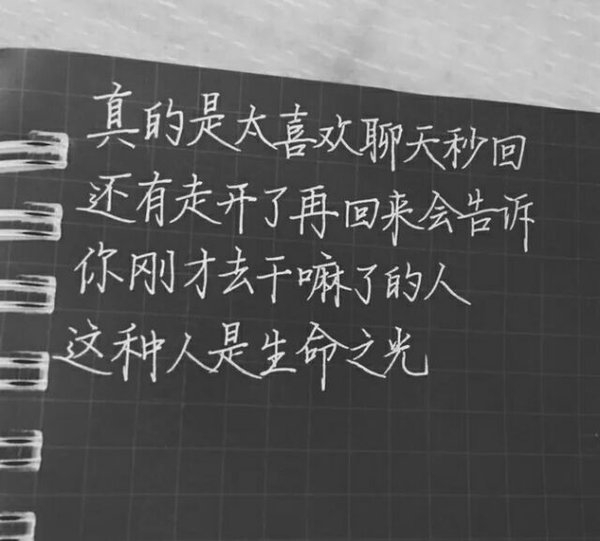 真的是太喜欢聊天秒回
还有走开了再回来会告诉
你刚才去干嘛了的人
这种人是生命之光